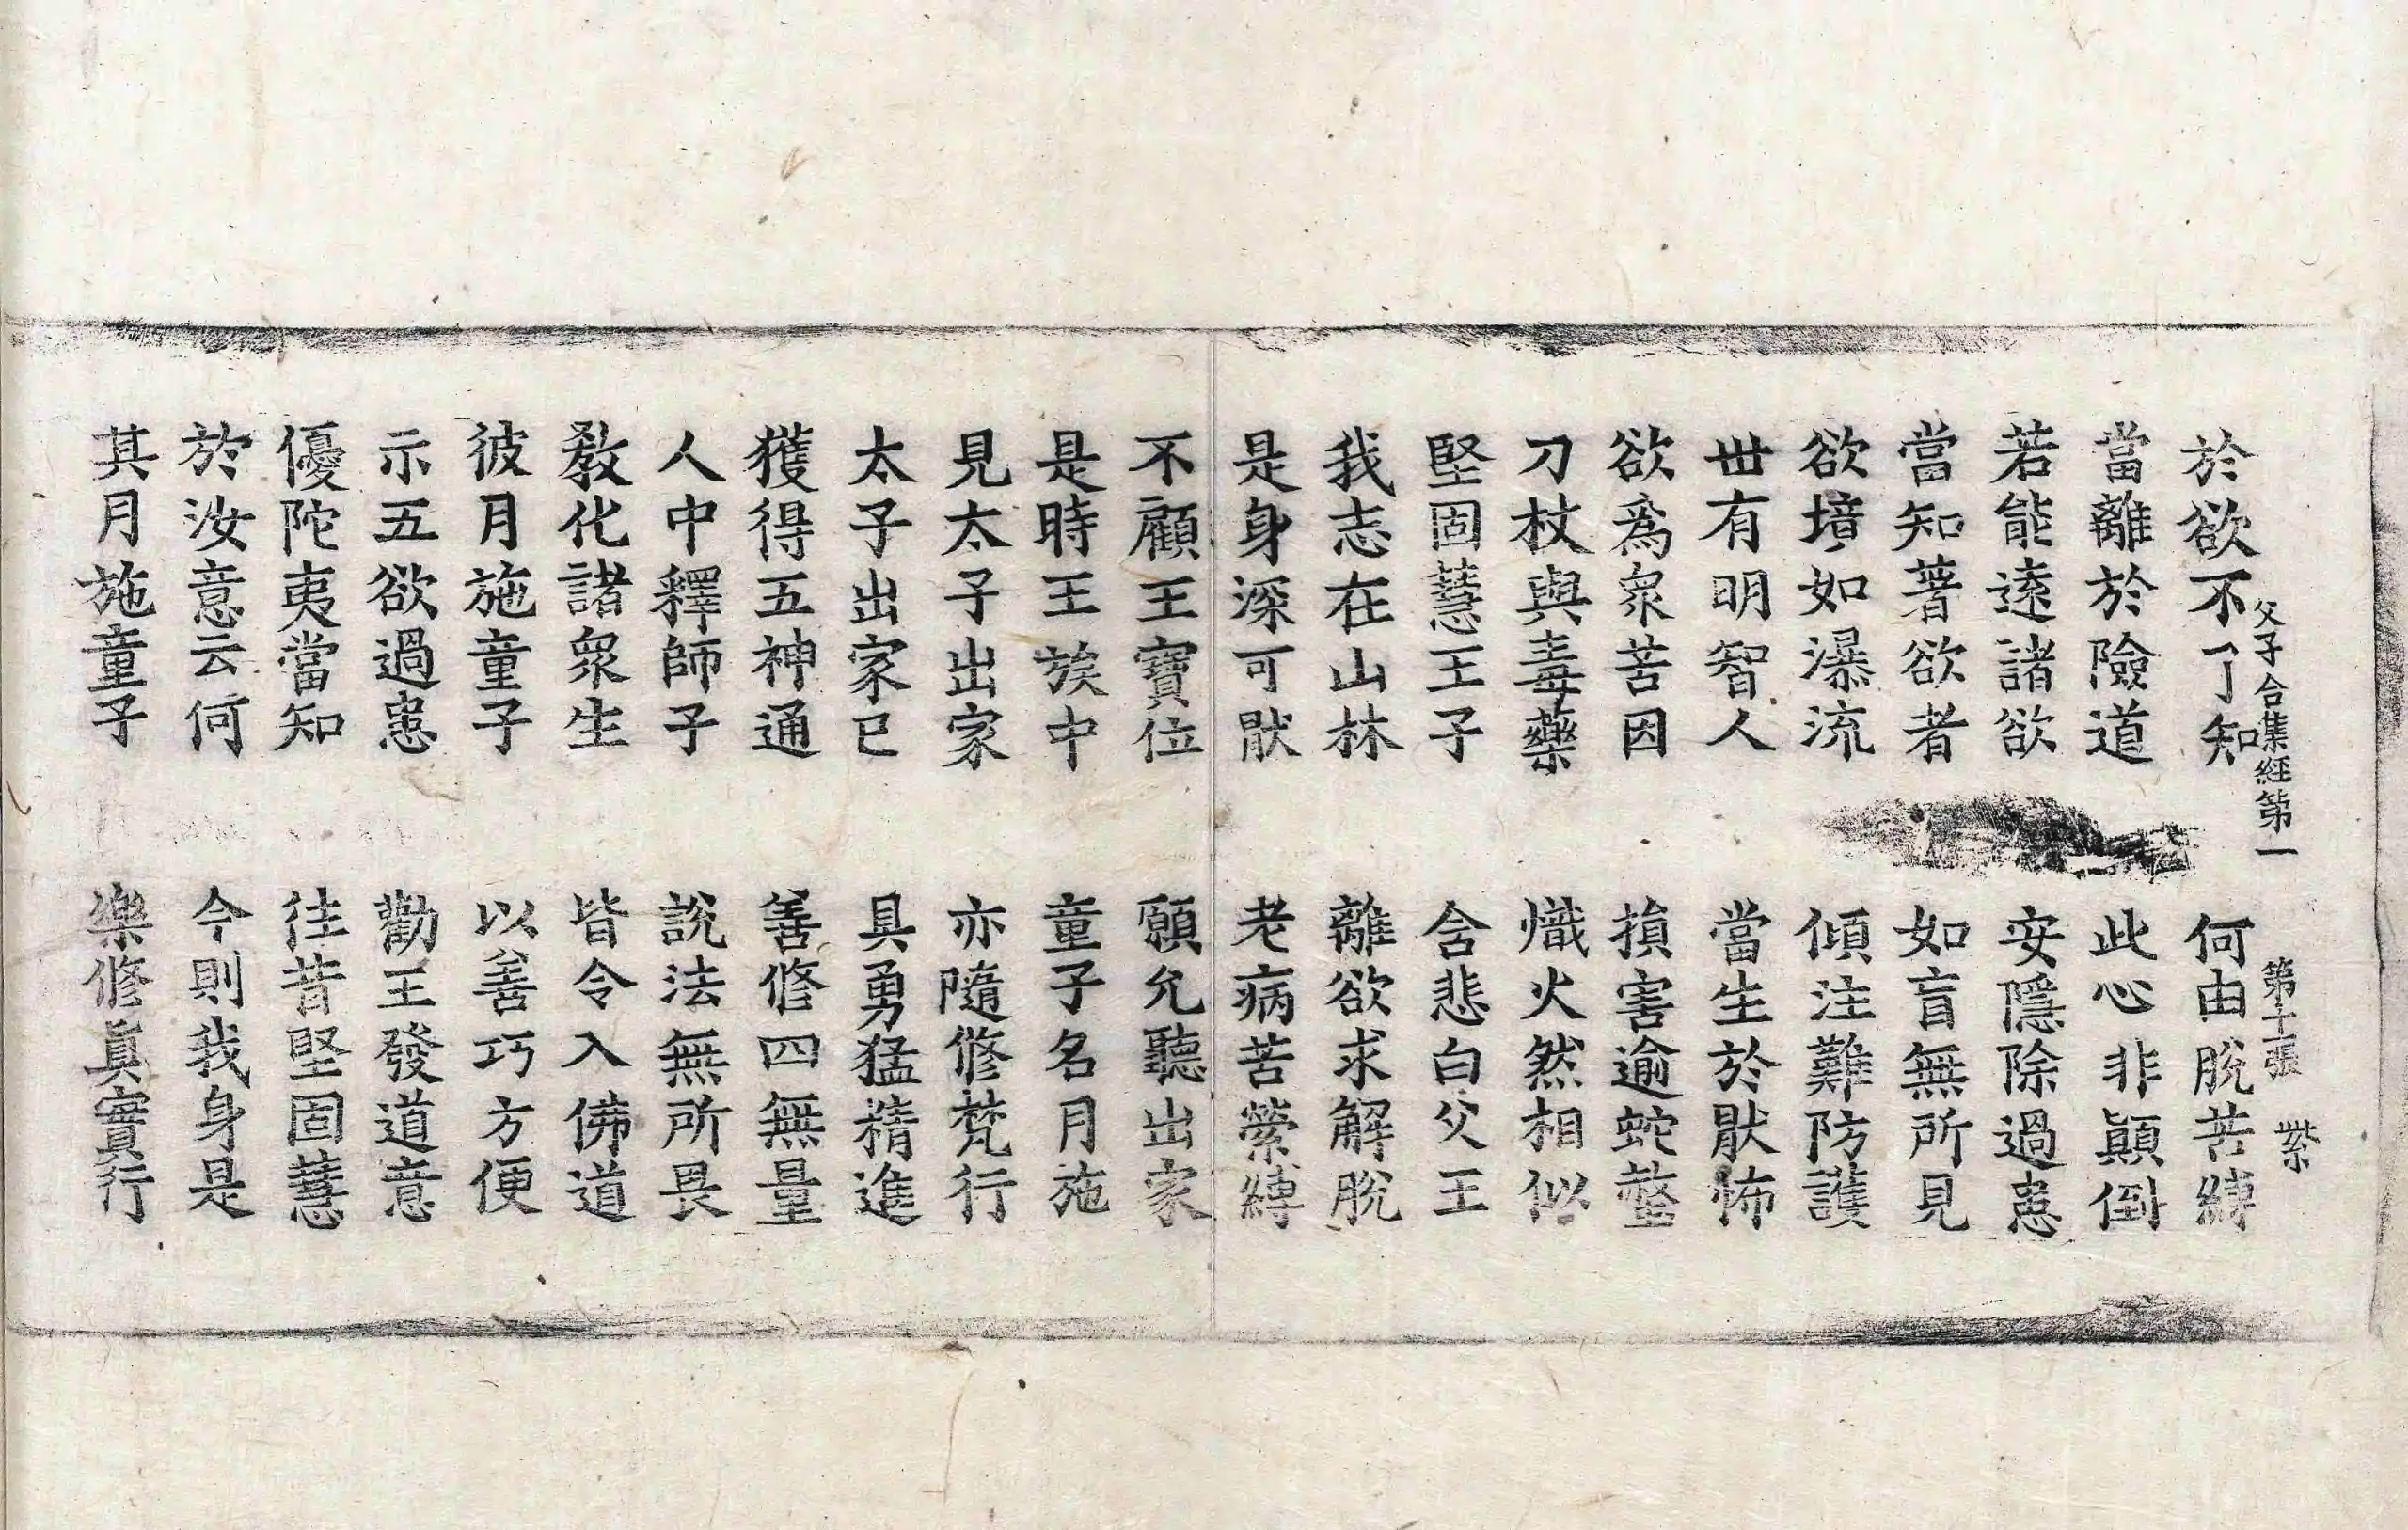 父子合集經第一 第十二張 紫
於欲不了知 何由脫苦縛
當離於險道 此心非顚倒
若能遠諸欲 安隱除過患
當知著欲者 如盲無所見
欲境如瀑流 傾注難防護
世有明智人 當生於厭怖
欲爲衆苦因 損害逾蛇螫
刀杖與毒藥 熾火然相似
堅固慧王子 含悲白父王
我志在山林 離欲求解脫
是身深可厭 老病苦縈縛
不顧王寶位 願允聽出家
是時王族中 童子名月施
見太子出家 亦隨修梵行
太子出家已 具勇猛精進
獲得五神通 善修四無量
人中釋師子 說法無所畏
敎化諸衆生 皆令入佛道
彼月施童子 以善巧方便
示五欲過患 勸王發道意
優陀夷當知 往昔堅固慧
於汝意云何 今則我身是
其月施童子 樂修眞實行